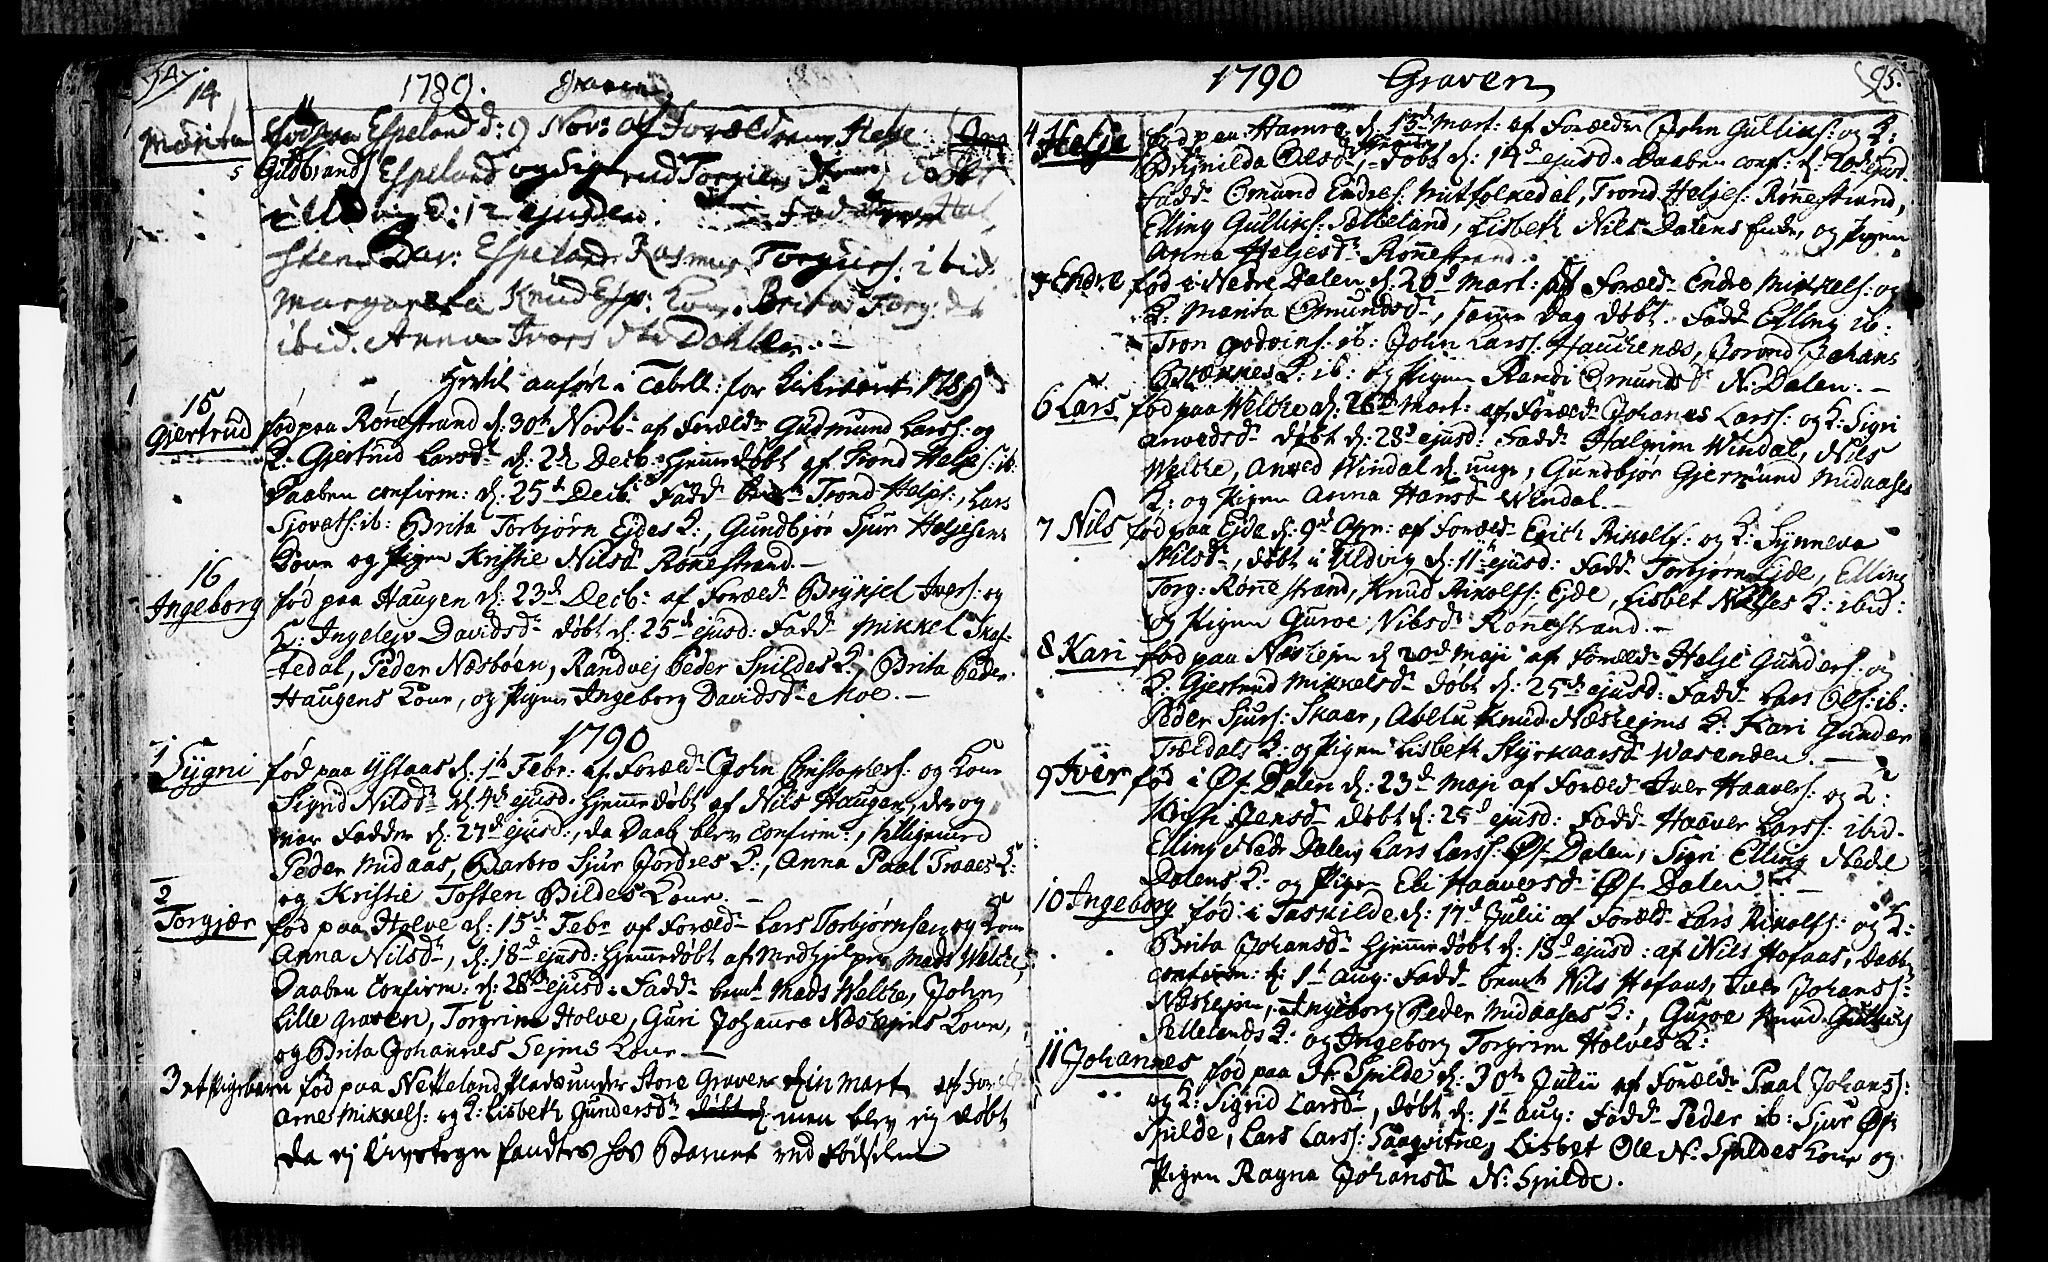 1789. Graven
14
Marita Espeland d: 9 Nov: af Forældrene Helje
Guldbrands: Espeland og Sigrud Torgiers
d: 12 ejusdem. Fad
Espeland Rasmus Torgiers: ibid.
Margareta Knud Esp: Kone. Brita Torg: dt
ibid. Anna Ivers dtr Dahlen. –
Hertil anført i Tabell: for Kirkeaaret 1789
15
Gjertrud fød paa Rønestrand d: 30t Novb: af Foræld: Gudmund Larss: og
K: Gjertrud Larsdr d: 2d Decb: hjemmedøbt af Trond Heljes: ib:
Daaben confirm: d: 25d Decb: Fadd: bemt Trond Heljes:, Lars
Sjovats: ib: Brita Torbjørn Ejdes K:, Gundbjør Sjur Heljesens
Kone og Pigen Kristie Nilsd Rønestrand. –
16
Ingeborg fød paa Haugen d: 23d Decb: af Foræld: Brynjel Ivers: og
K: Ingelejv Davidsdr døbt d: 25d ejusd: Fadd: Mikkel Skaf-
tedal, Peder Næsbøen, Randvej Peder Spildes K:, Brita Peder
Haugens Kone, og Pigen Ingeborg Davidsd: Moe. –
1790
1 Sygni fød paa Ystaas d: 1t Febr: af Foræld: John Christophers: og Kone
Sigrid Nilsdr d: 4d ejusd: hjemmedøbt af Nils Haugen, der og
var Fadder d: 27d ejusd:, da Daab blev confirm:, tilligemed
Peder Midaas, Barbro Sjur Jordres K:, Anna Paal Traaes K:
og Kristie Tosten Bildes Kone. –
2
Torgjær fød paa Holve d: 15d Febr af Foræld: Lars Torbjørnsen og Kone
Anna Nilsdr, d: 18d ejusd: hjemmedøbt af Medhjelper Mads Welche,
Daaben confirm: d: 28d ejusd: Fadd: bemt Mads Welche, John
Lille Graven, Torgrim Holve, Guri Johannes Næshejms Kone,
og Brita Johannes Sejms Kone. –
3 et Pigebarn fød paa Nesseland Plads under Store Graven d: in Mart af For:
Arne Mikkels: og K: Lisbeth Gundersdr døbt d: men blev ej døbt
da ej Livstegn fandtes hos Barnet ved Fødselen
1790 Graven 95.
4 Helje fød paa Hamre d: 13d Mart: af Forældr John Gulliks: og K:
Brynilda Olsdr, døbt d: 14d ejusd: Daaben conf: d: 20d ejusd:
Fadd: Omund Endres: Mitfolkedal, Trond Heljes: Rønestrand,
Elling Gulliks: Sælleland, Lisbeth Nils Dalens Enke, og Pigen
Anna Heljesdr Rønestrand.
5 Endre fød i Nedre Dalen d: 20d Mart: af Foræld: Endre Mikkels: og
K: Marita Omundsdr, samme Dag døbt. Fadd: Elling ib:
Tron Godvins: ib: John Larss: Hauchenæs, Jorond Johans
Brækkes K: ib: og Pigen Randi Omundsd: N: Dalen. –
6 Lars fød paa Welche d: 26d Mart: af Foræld: Johanes Larss: og K: Sigri
Anvedsdr døbt d: 28d ejusd: Fadd: Halgrim Windal, Nils
Welche, Anved Windal d: unge, Gundbjør Gjermund Midaases
K: og Pigen Anna Hansd Windal. –
7 Nils fød paa Ejde d: 9d Apr: af Foræld: Erich Rikolfs: og K: Synneva
Nilsdr, døbt i Uldvig d: 11t ejusd: Fadd: Torbjørn Ejde, Elling
Torg: Rønestrand, Knud Rikolfs: Ejde, Lisbet Nilses K: ibid:
og Pigen Guroe Nilsdr Rønestrand. –
8 Kari fød paa Næshejm d: 20d Maji af Foræld: Helje Gunders: og
K: Gjertrud Mikkelsdr døbt d: 25d ejusd: Fadd: Lars Ols: ib:
Peder Sjurs: Skaar, Abelu Knud Næshejms K: Kari Gunder
Trældals K: og Pigen Lisbeth Styrkaarsd Wasenden. –
9 Iver fød i Øf: Dalen d: 23d Maji af Foræld: Iver Haavers: og K:
Kristi Jensdr døbt d: 25d ejusd: Fadd: Haaver Larss: ibid.
Elling Nedr Dalen, Lars Larss: Øf: Dalen, Sigri Elling Nedr
Dalens K: og Pigen Eli Haaversd: Øf: Dalen. –
10 Ingeborg fød i Taskilde d: 17d Julii af Foræld: Lars Rikolfs: og K:
Brita Johansdr hjemmedøbt d: 18d ejusd: af Nils Hofaas, Daab
confirm: d: 1t Aug: Fadd: bemt Nils Hofaas, Iver Johans:
Næshejm, Ingeborg Peder Midaases K:, Guroe Knud Gulliks
Sellelands K: og Ingeborg Torgrim Holves K:
11 Johannes fød paa Spilde d: 30t Julii af Foræld: Paal Johans:
og K: Sigrid Larsdr, døbt d: 1t Aug: Fadd: Peder ib: Sjur Øf:
Spilde, Lars Larss: Saaqvitne, Lisbet Ole N: Spildes Kone og
Pigen Ragna Johansd N: Spilde.